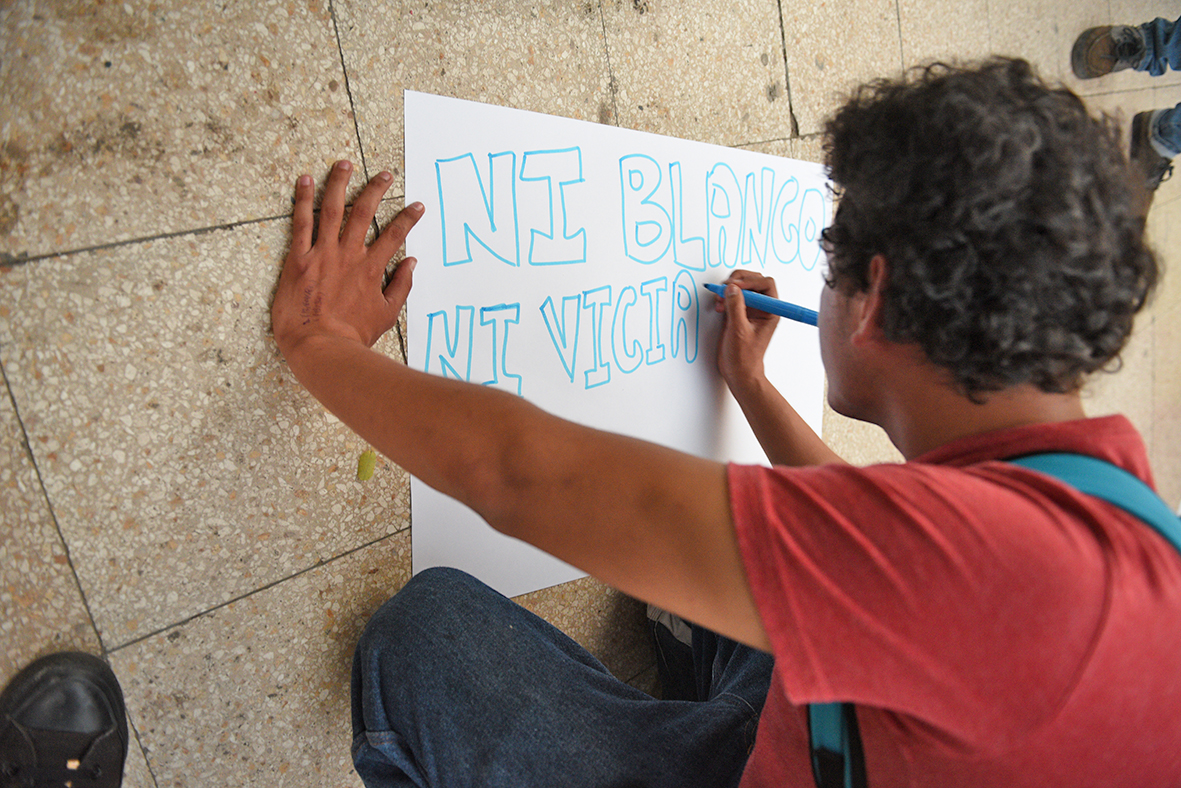 NI BLANCO
NI VICIA